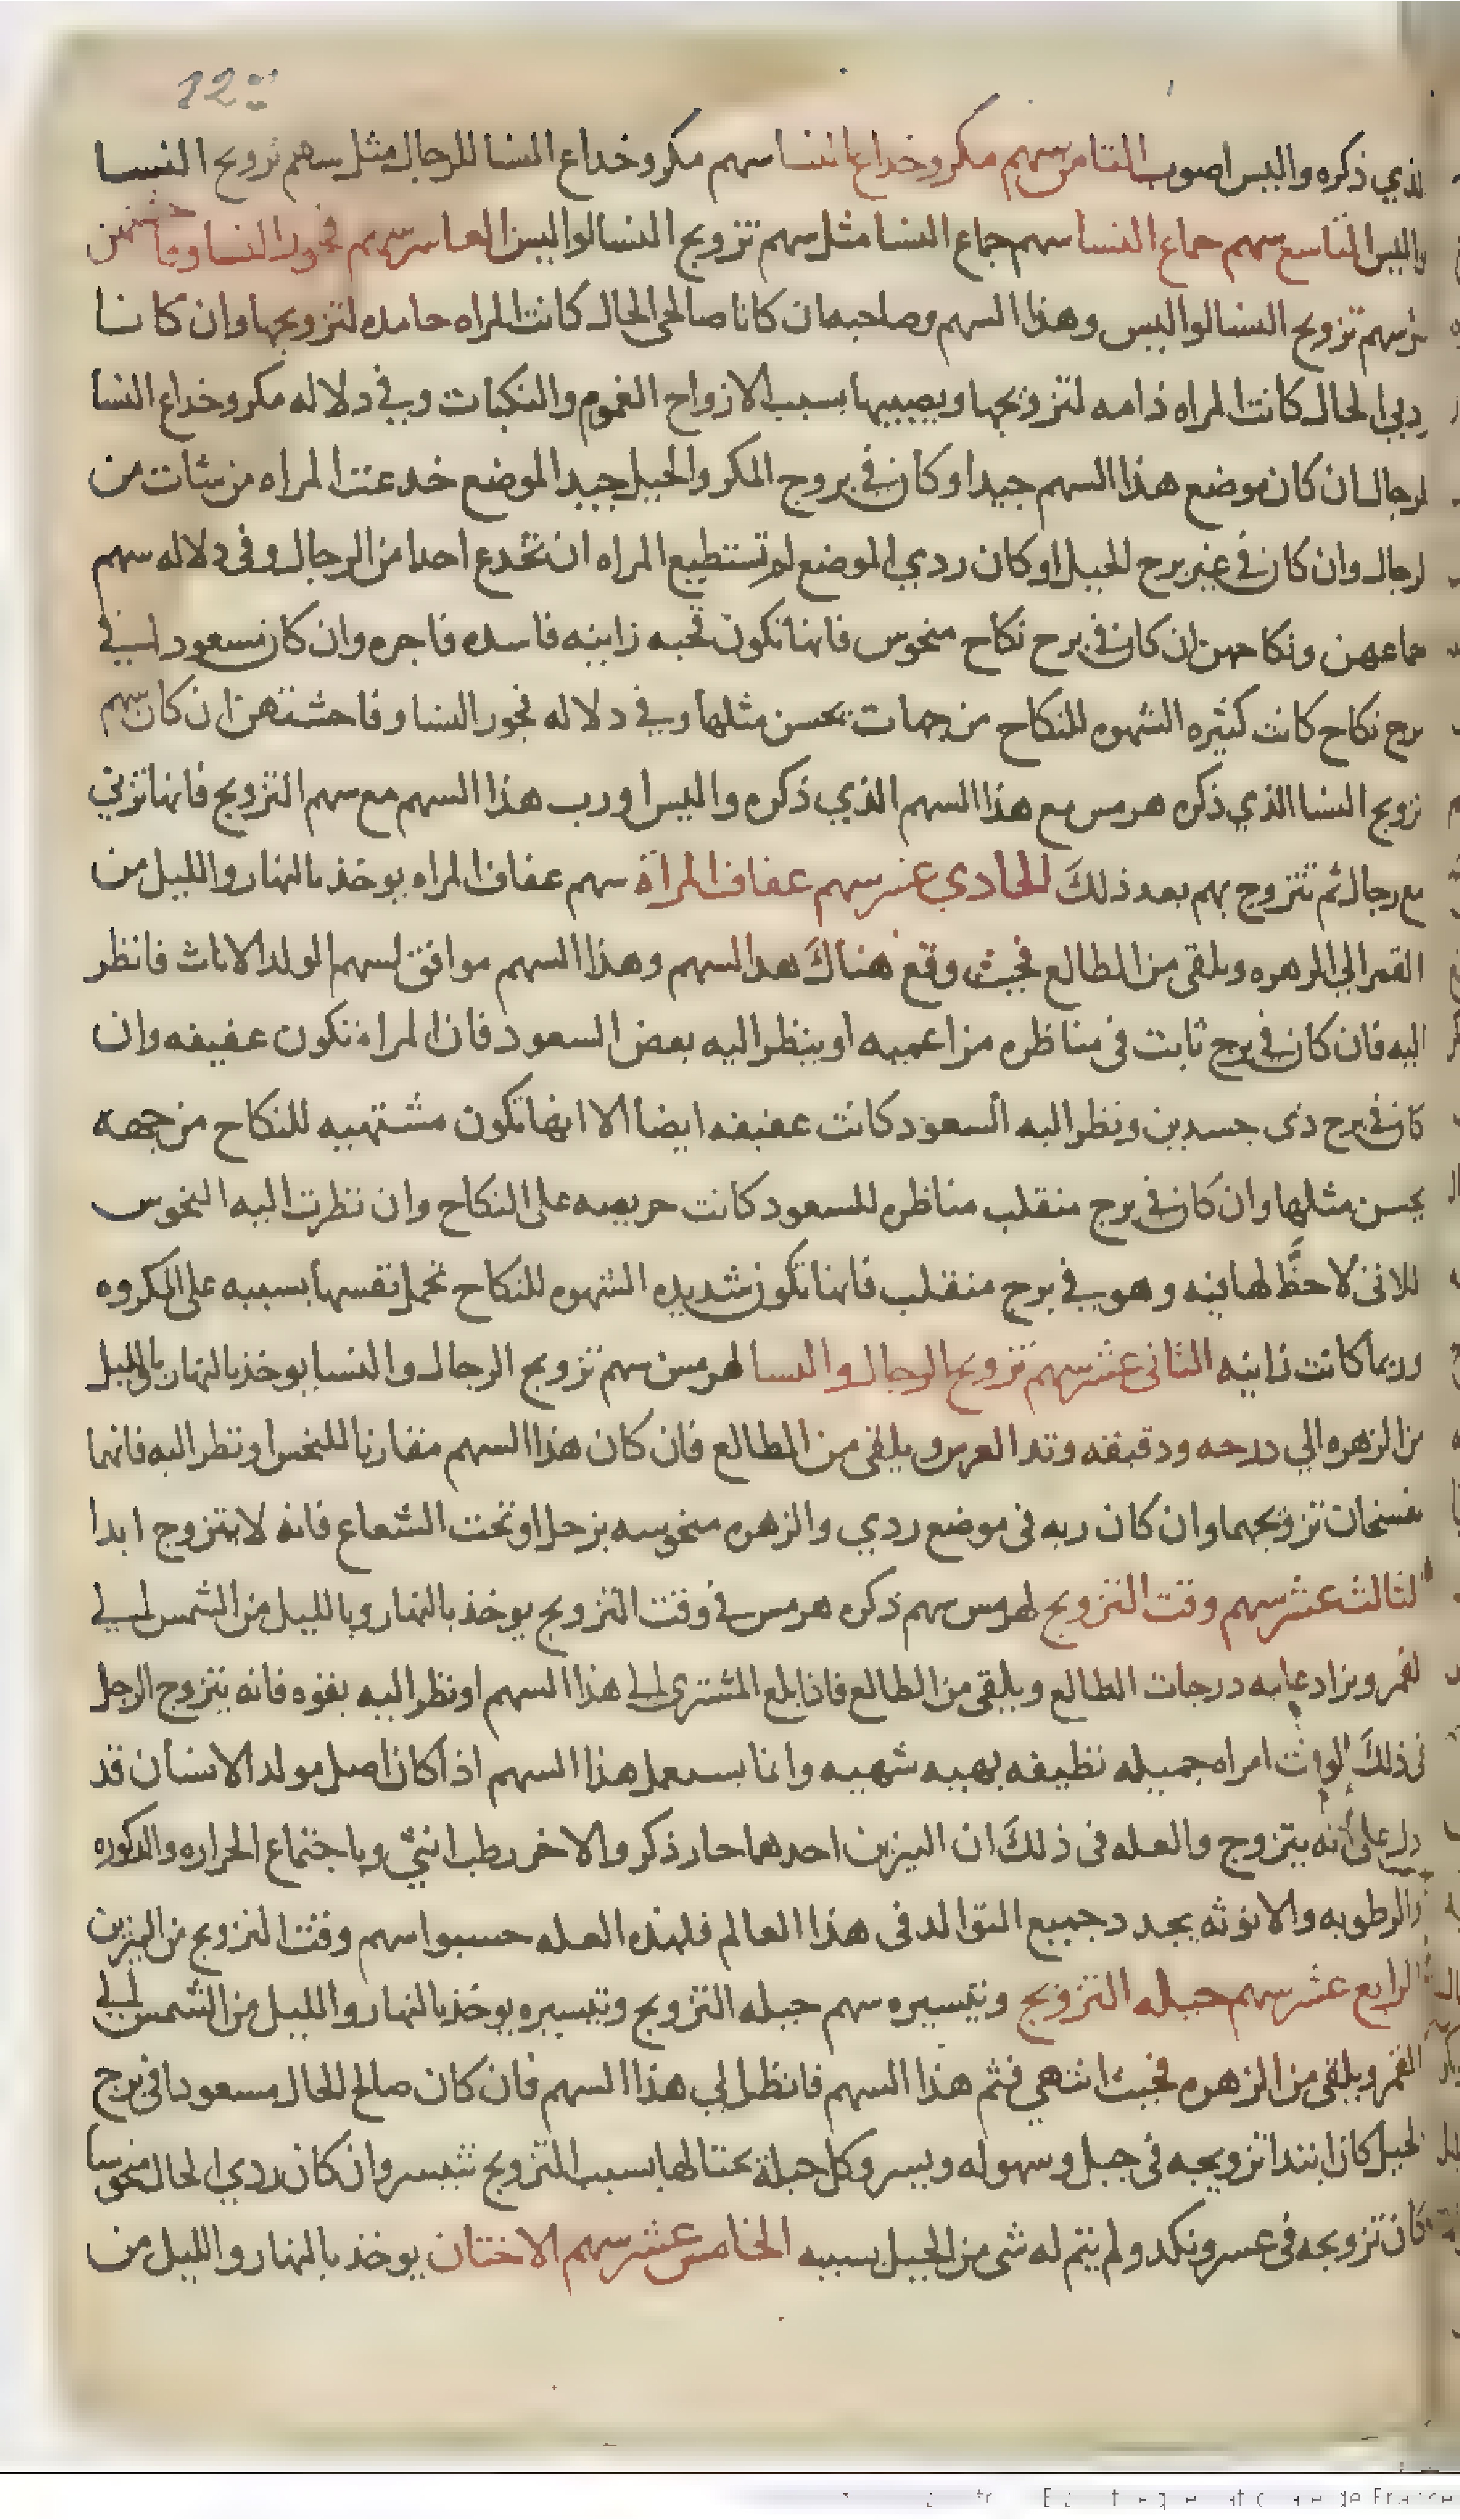 12
لذي ذكره واليس اصوب الثامن سهم مكر وخداع النسا سهم مكر وخداع النسا للرجال مثل سهم تزويج النسا
واليس التاسع سهم جماع النسا سهم جماع النسا مثل سهم تزويج النسا لواليس العاشر سهم فجور النسا وفاحشتهن
سهم تزويج النسا لواليس وهذا السهم وصاحبه ان كانا صالحى الحال كانت المراه حامده لتزويجها وان كانا
ردي الحال كانت المراه ذامه لتزويجها ويصيبها بسبب الازواج الغموم والنكبات وفي دلاله مكر وخداع النسا
لرجال ان كان موضع هذا السهم جيدا وكان في بروج المكر والحيل جيد الموضع خدعت المراه من شات من
لرجال وان كان في غير برج للحيل او كان ردي الموضع لم تستطيع المراه ان تخدع احدا من الرجال وفى دلاله سهم
جماعهن ونكاحهن ان كان في برج نكاح منحوس فانها تكون قحبه زانيه فاسده فاجره وان كان مسعود في
برج نكاح كانت كثيره الشهوه للنكاح من جهات يحسن مثلها وفي دلاله فجور النسا وفاحشتهن ان كان سهم
تزويج النسا الذي ذكره هرمس مع هذا السهم الذي ذكره واليس او رب هذا السهم مع سهم التزويج فانها تزني
مع رجال ثم تتزوج بهم بعد ذلك الحادي عشر سهم عفاف المراة سهم عفاف المراه يوخذ بالنهار والليل من
القمر الي الزهره ويلقى من الطالع فحيث وقع هناك هدا السهم وهذا السهم موافق لسهم الولد الاناث فانظر
اليه فان كان في برج ثابت فى مناظره من اعميه او ينظر اليه بعض السعود فان المراة تكون عفيفه وان
كان في برج ذى جسدين ونظر اليه السعود كانت عفيفه ايضا الا انها تكون مشتهيه للنكاح من جهه
يحسن مثلها وان كان في برج منقلب مناظره للسعود كانت حريصه على النكاح وان نظرت اليه النحوس
للاتى لا حظَّ لها فيه وهو في برج منقلب فانها تكون شديده الشهوه للنكاح تحمل نفسها بسببه على المكروه
وربما كانت زانيه الثانى عشر سهم تزويج الرجال والنسا لهرمس سهم تزويج الرجال والنسا يوخذ بالنهار والليل
من الزهره الي درجه ودقيقه وتد العرس ويلقى من الطالع فان كان هذا السهم مقارنا للنحس او نظر اليه فانهما
يفسخان تزويجهما وان كان ربه فى موضع ردي والزهره منحوسه بزحل او تحت الشعاع فانه لا يتزوج ابدا
لثالث عشر سهم وقت التزويج لهرمس سهم ذكره هرمس في وقت التزويج يوخذ بالنهار وبالليل من الشمس الي
لقمر ويزاد عليه درجات الطالع ويلقى من الطالع فاذا بلغ المشترى الي هذا السهم او نظر اليه بقوه فانه يتزوج الرجل
فى ذلك الوقت امراه جميله نظيفه بهيه شهيه وانما يستعمل هذا السهم اذا كان اصل مولد الانسان قد
دل على أنه يتزوج والعله فى ذلك ان النيرين احدهما حار ذكر والاخر رطب انثي وباجتماع الحراره والذكوره
والرطوبه والانوثه يحدد جميع التوالد فى هذا العالم فلهذه العله حسبوا سهم وقت التزويج من النيرين
الرابع عشر سهم حيله التزويج وتيسيره سهم حيله التزويج وتيسيره يوخذ بالنهار والليل من الشمس الي
القمر ويلقى من الزهره فحيث انتهي فثم هذا السهم فانظر الي هذا السهم فان كان صالح الحال مسعودا فى برج
لحيل كان ابتدا تزويجه فى حيل وسهوله ويسر وكل حيلة يحتالها بسبب التزويج تتيسر وان كان ردي الحال منحوسا
كان تزويجه فى عسر ونكد ولم يتم له شى من الحيل بسببه الخامس عشر سهم الاختان يوخذ بالنهار والليل من